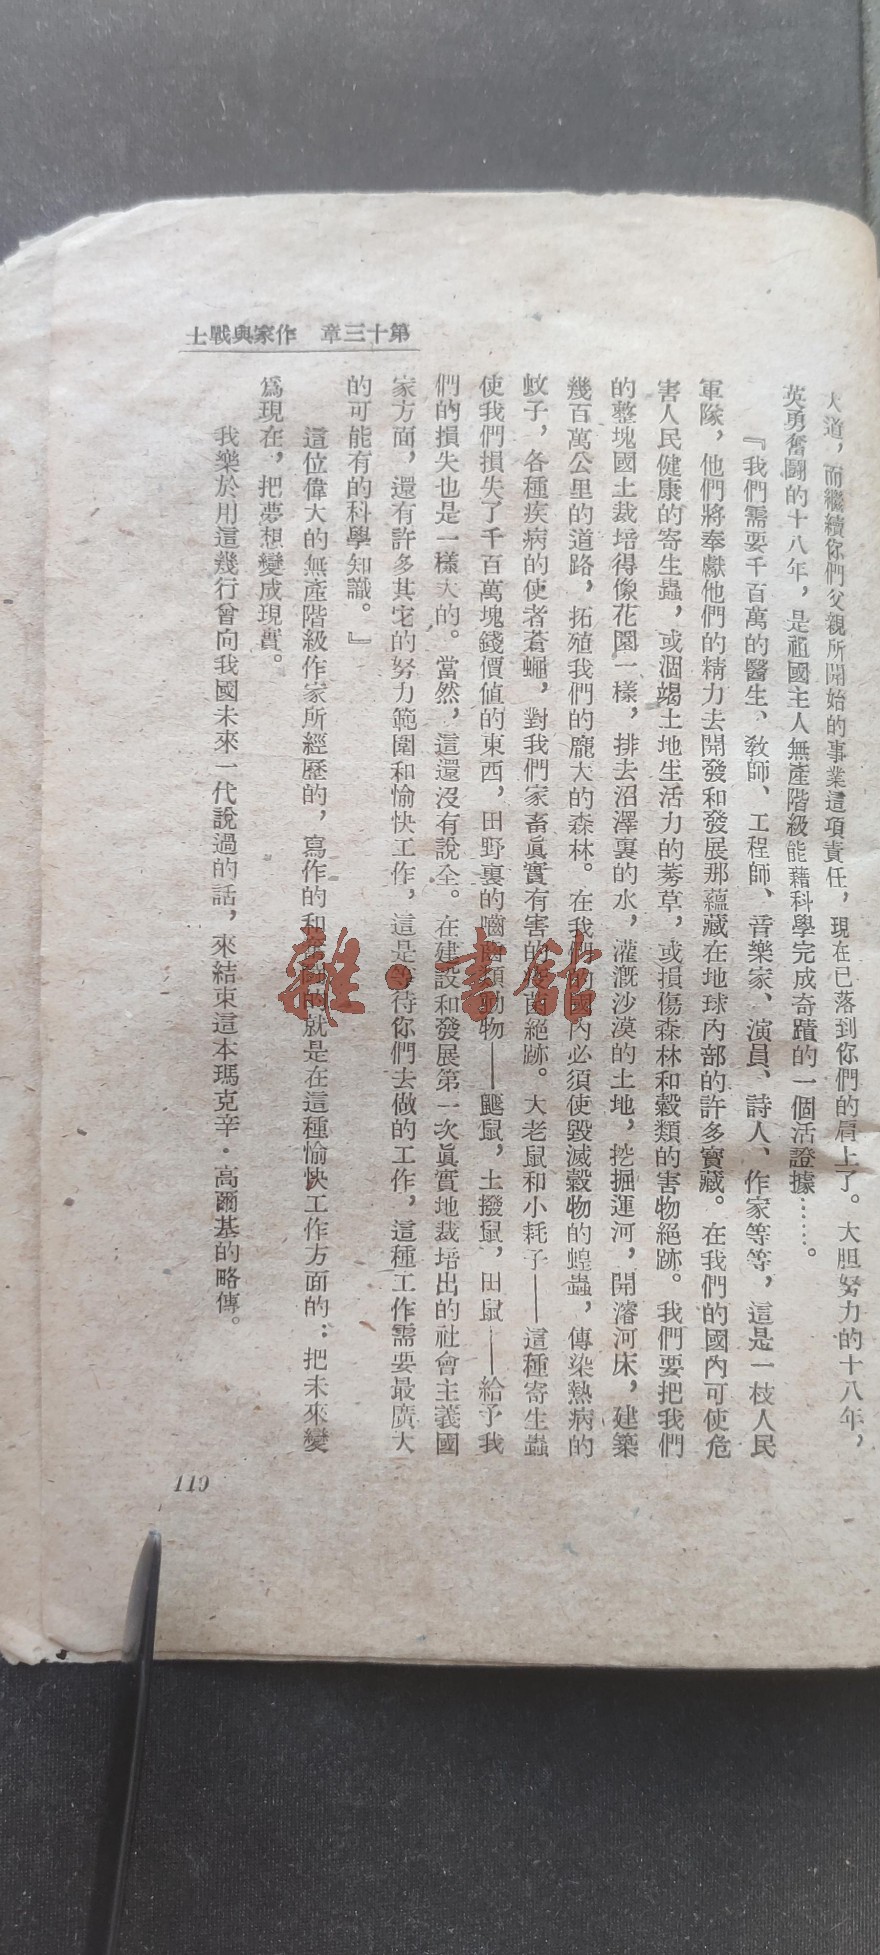 第十三章　作家與戰士
大道，而繼續你們父親所開始的事業這項責任，現在已落到你們的肩上了。大胆努力的十八年，
英勇奮鬭的十八年，是祖國主人無產階級能藉科學完成奇蹟的一個活證據……。
『我們需要千百萬的醫生、教師、工程師、音樂家、演員、詩人、作家等等，這是一枝人民
軍隊，他們將奉獻他們的精力去開發和發展那蘊藏在地球內部的許多寶藏。在我們的國內可使危
害人民健康的寄生蟲，或涸竭土地生活力的莠草，或損傷森林和穀類的害物絕跡。我們要把我們
的整塊國土栽培得像花園一樣，排去沼澤裏的水，灌溉沙漠的土地，挖掘運河，開濬河床，建築
幾百萬公里的道路，拓殖我們的龐大的森林。在我們的國內必須使毀滅穀物的蝗蟲，傳染熱病的
蚊子，各種疾病的使者蒼蠅，對我們家畜眞實有害的疫菌絕跡。大老鼠和小耗子——這種寄生蟲
使我們損失了千百萬塊錢價值的東西，田野裏的嚙齒類動物——鼴鼠，土撥鼠，田鼠——給予我
們的損失也是一樣大的。當然，這還沒有說全。在建設和發展第一次眞實地栽培出的社會主義國
家方面，還有許多其它的努力範圍和愉快工作，這是等待你們去做的工作，這種工作需要最廣大
的可能有的科學知識。』
這位偉大的無產階級作家所經歷的，寫作的和的就是在這種愉快工作方面的：把未來變
爲現在，把夢想變成現實。
我樂於用這幾行曾向我國未來一代說過的話，來結束這本瑪克辛·高爾基的略傳。
119
雜·書館